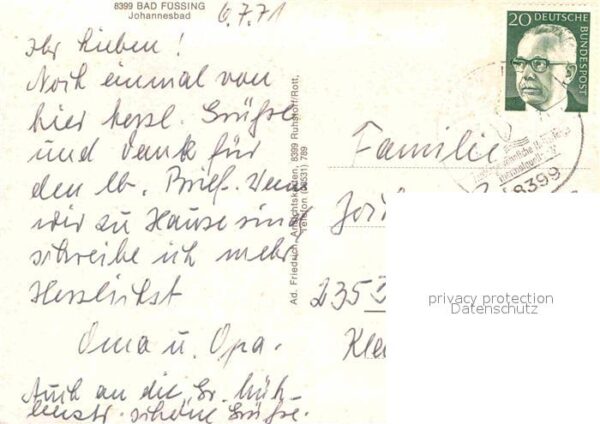 8399 BAD FÜSSING
Johannesbad
6.7.71
Ihr Lieben!
Noch einmal von
hier herzl. Grüße
und Dank für
den lb. Brief. Wenn
wir zu Hause sind,
schreibe ich mehr.
Herzlichst
Oma u. Opa.
Auch an die Gr.
schöne Grüße.
Ad. Friedrich, Ansichtskarten, 8399 Ruhstorf/Rott,
Telefon (08531) 789
20 DEUTSCHE
BUNDESPOST
8399
Familie
2353
privacy protection
Datenschutz